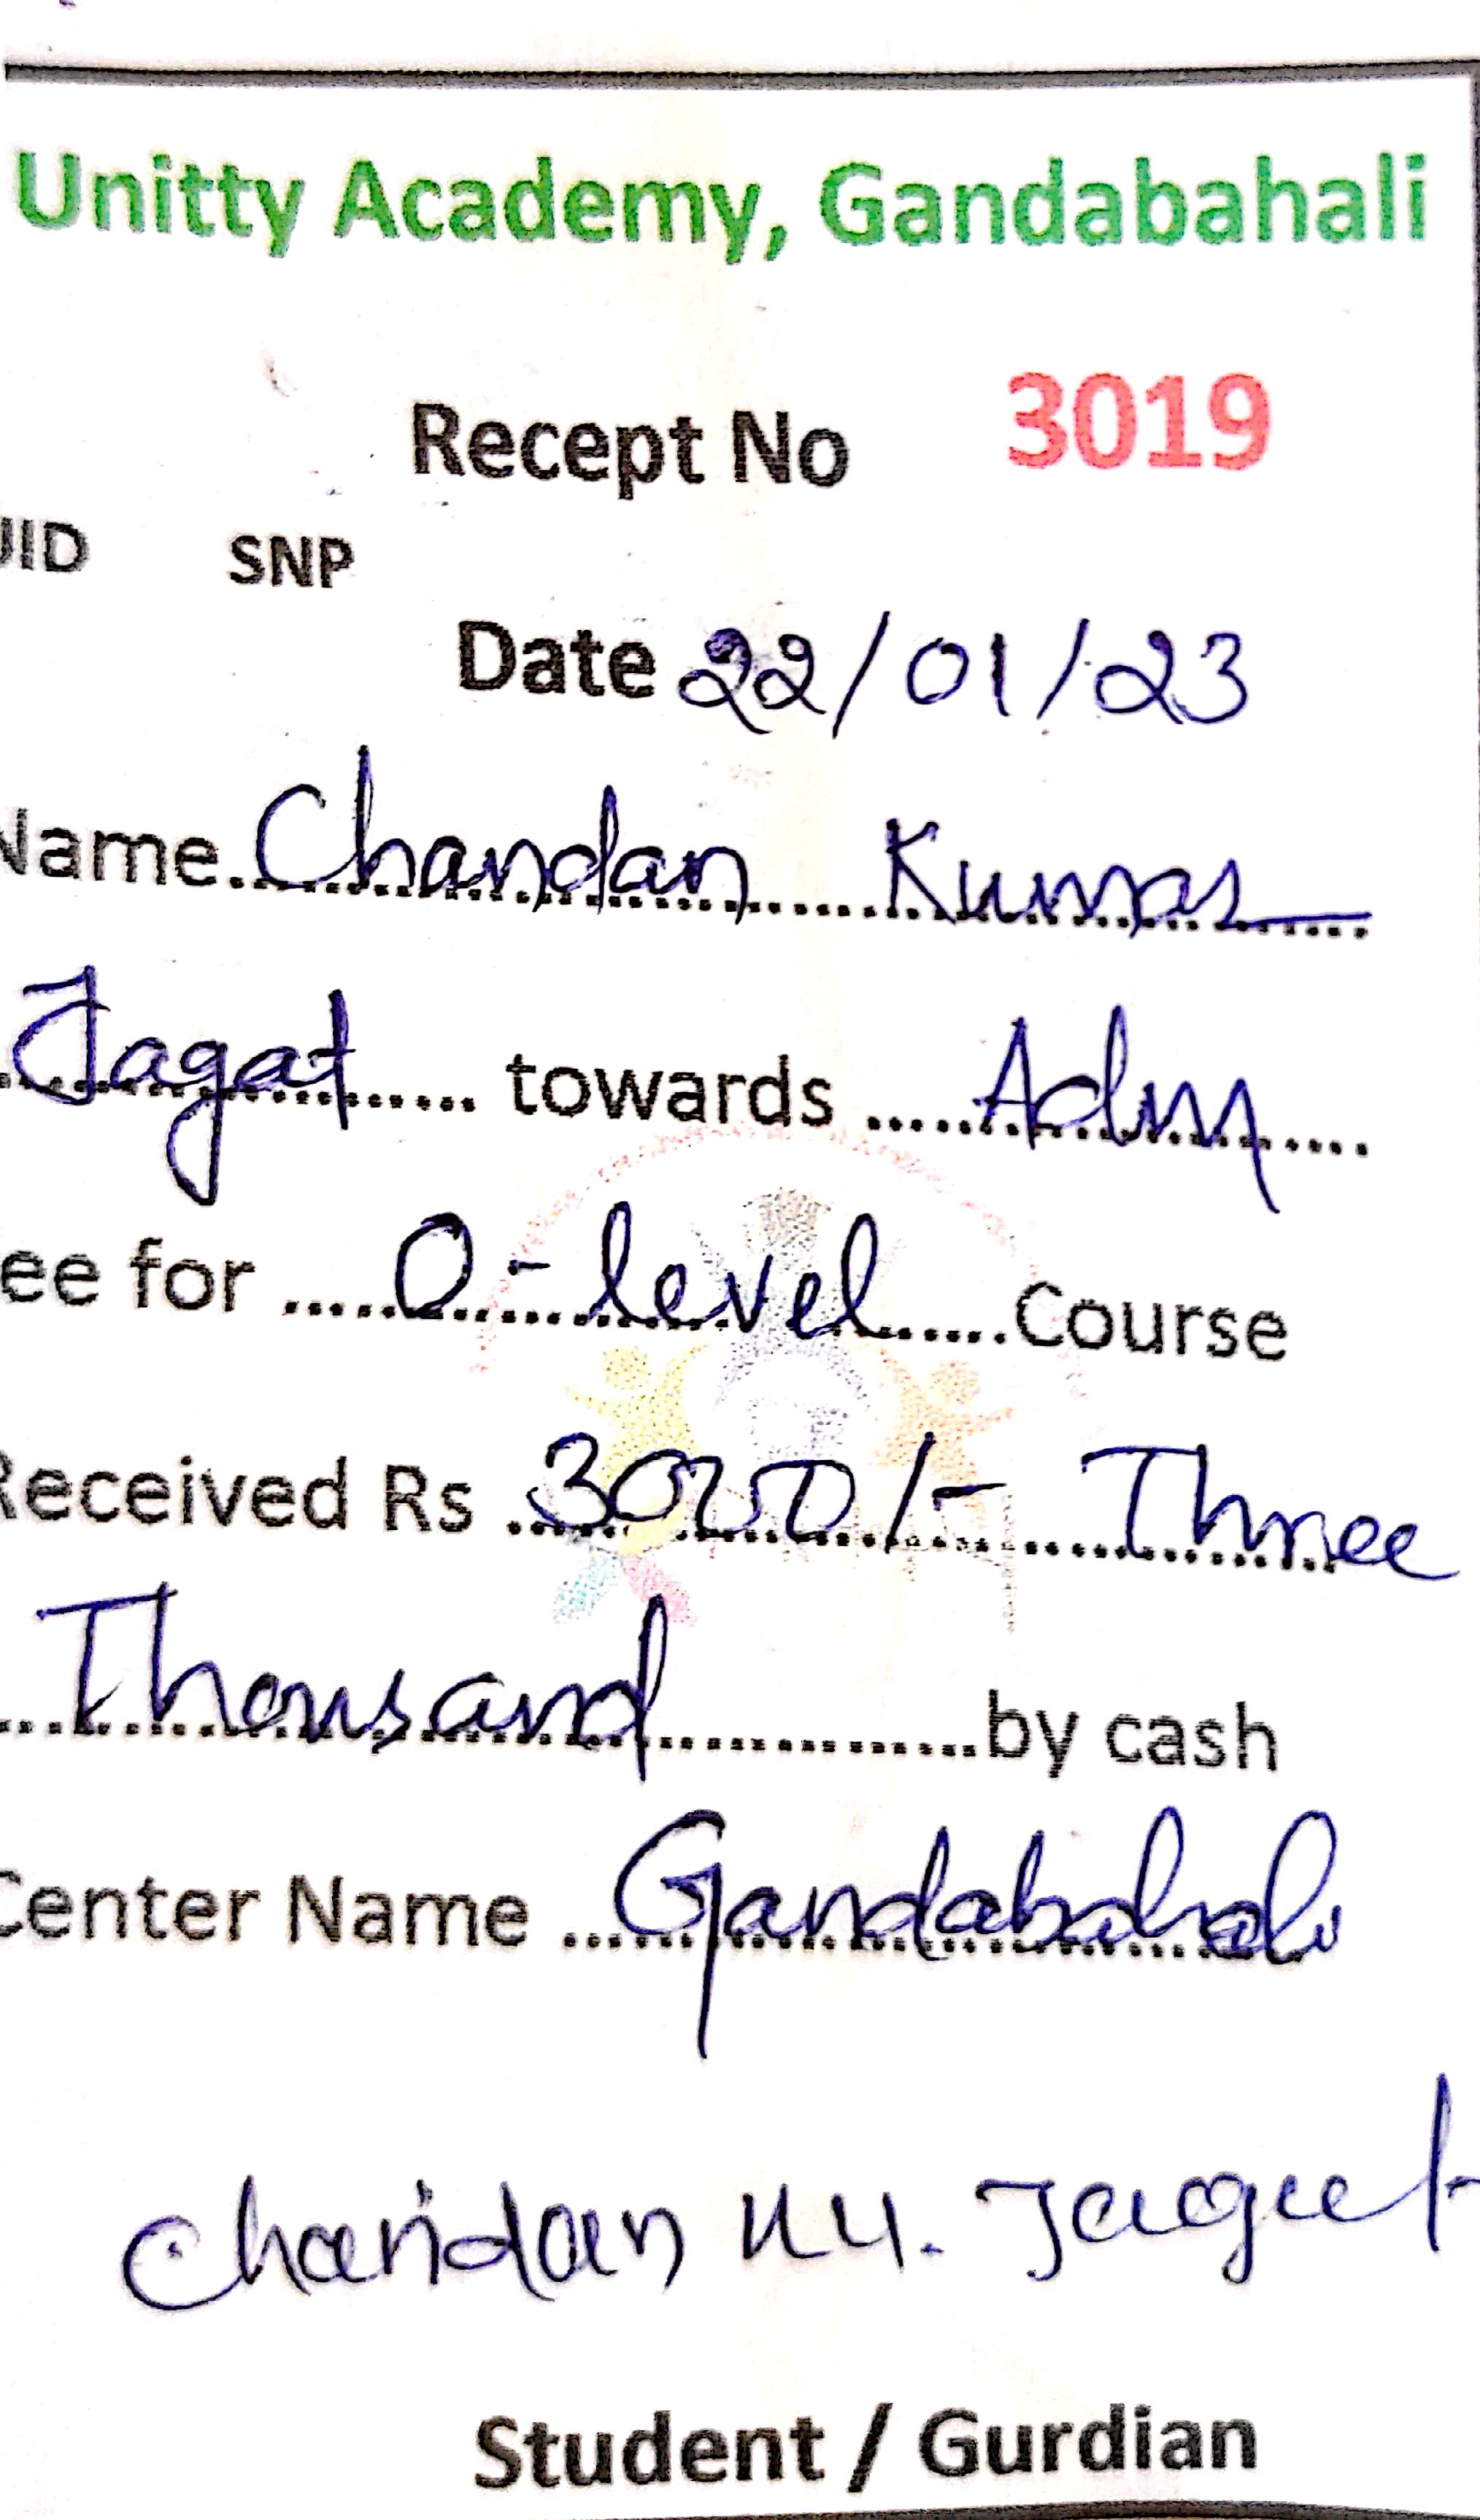 Unitty Academy, Gandabahali
Recept No 3019
UID SNP
Date 22/01/23
Name. Chandan Kumar
Jagat towards Adm
ee for O-level Course
Received Rs 3000/- Three
Thousand by cash
Center Name Gandabahali
Chandan Ku. Jagat
Student / Gurdian